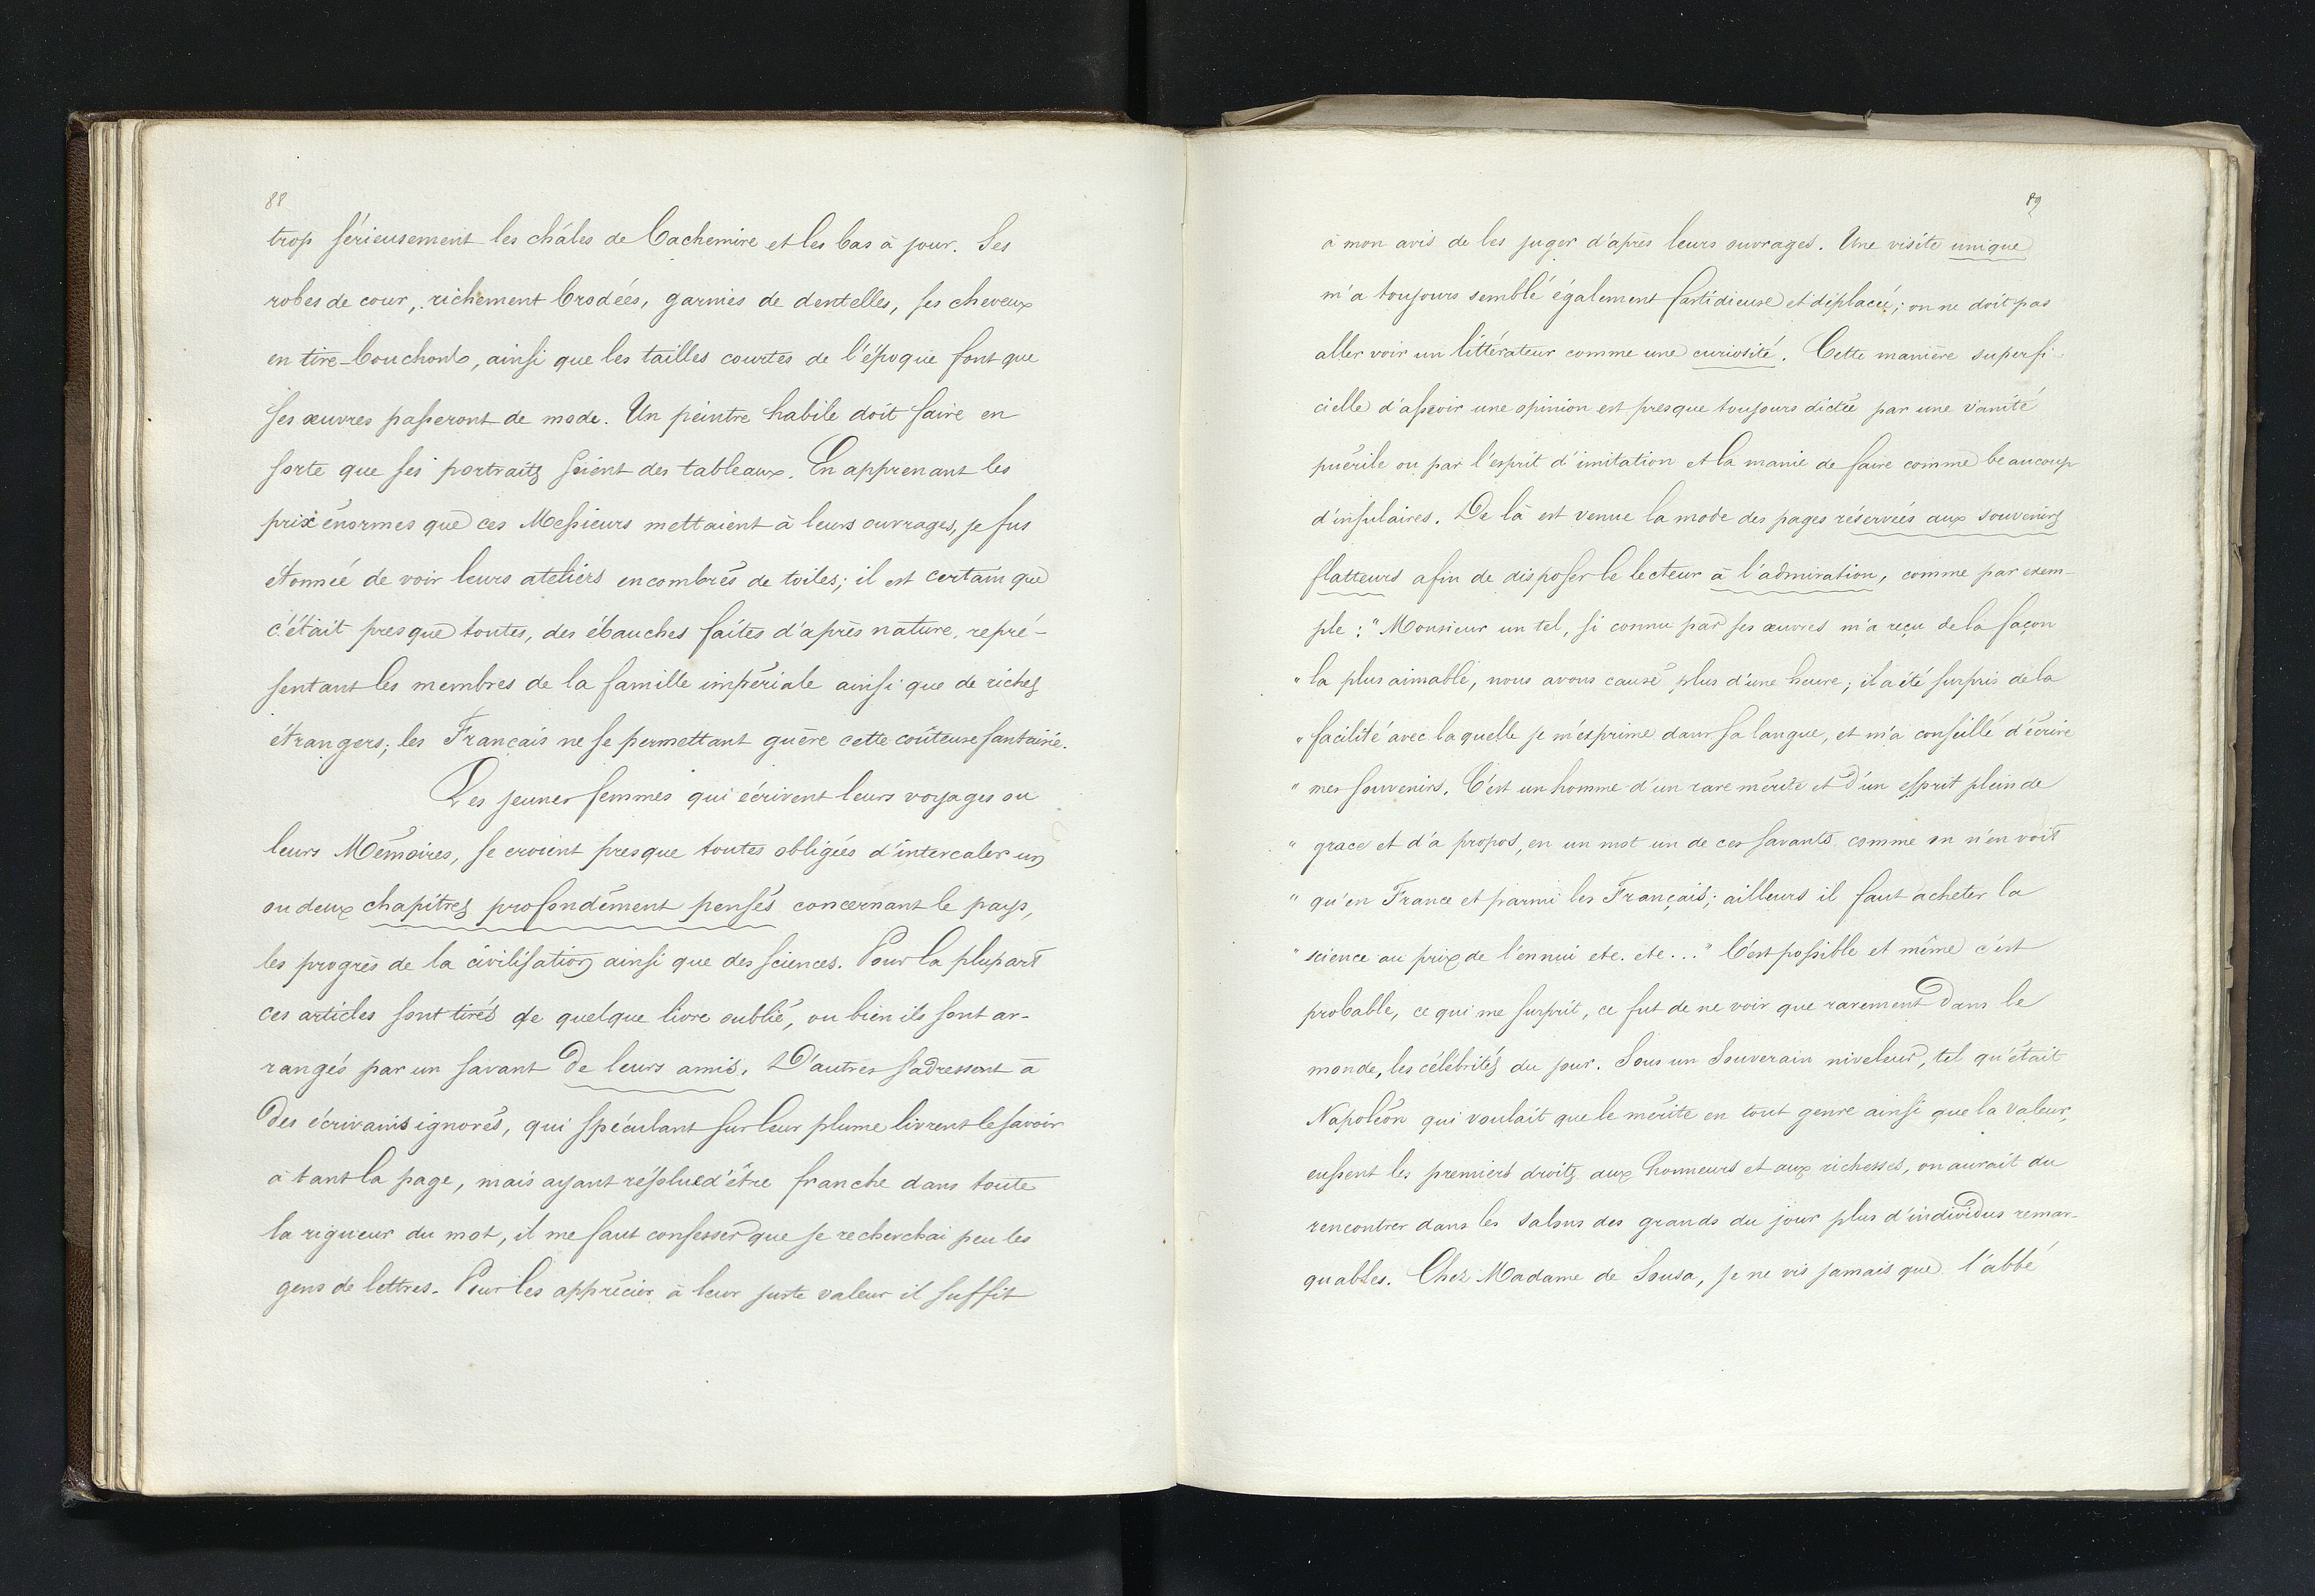 88
trop sérieusement les châles de Cachemire et les bas à jour. Ses
robes de cour, richement brodées, garnies de dentelles, ses cheveux
en tire-bouchons, ainsi que les tailles courtes de l'époque font que
ses œuvres passeront de mode. Un peintre habile doit faire en
sorte que ses portraits soient des tableaux. En apprenant les
prix énormes que ces Messieurs mettaient à leurs ouvrages, je fus
étonnée de voir leurs ateliers encombrés de toiles; il est certain que
c'était presque toutes, des ébauches faites d'après nature, repré-
sentant les membres de la famille impériale ainsi que de riches
étrangers; les Français ne se permettant guère cette coûteuse fantaisie.
Les jeunes femmes qui écrivent leurs voyages ou
leurs Mémoires, se croient presque toutes obligées d'intercaler un
ou deux chapitres profondément pensés concernant le pays,
les progrès de la civilisation ainsi que des sciences. Pour la plupart
ces articles sont tirés de quelque livre oublié, ou bien ils sont ar-
rangés par un savant de leurs amis. D'autres s'adressent à
des écrivains ignorés, qui spéculant sur leur plume livrent le savoir
à tant la page, mais ayant résolue d'être franche dans toute
la rigueur du mot, il me faut confesser que je recherchai peu les
gens de lettres. Pour les apprécier à leur juste valeur il suffit
89
à mon avis de les juger d'après leurs ouvrages. Une visite unique
m'a toujours semblé également fastidieuse et déplacée; on ne doit pas
aller voir un littérateur comme une curiosité. Cette manière superfi-
cielle d'asseoir une opinion est presque toujours dictée par une vanité
puérile ou par l'esprit d'imitation et la manie de faire comme beaucoup
d'insulaires. De là est venue la mode des pages réservées aux souvenirs
flatteurs afin de disposer le lecteur à l'admiration, comme par exem-
ple: "Monsieur un tel, si connu par ses œuvres m'a reçu de la façon
" la plus aimable, nous avons causé plus d'une heure; il a été surpris de la
" facilité avec laquelle je m'exprime dans sa langue, et m'a conseillé d'écrire
" mes souvenirs. C'est un homme d'un rare mérite et d'un esprit plein de
" grace et d'a propos, en un mot un de ces savants comme on n'en voit
" qu'en France et parmi les Français; ailleurs il faut acheter la
" science au prix de l'ennui etc. etc..." C'est possible et même c'est
probable, ce qui me surprit, ce fut de ne voir que rarement dans le
monde, les célébrités du jour. Sous un Souverain niveleur, tel qu'était
Napoléon qui voulait que le mérite en tout genre ainsi que la valeur,
eussent les premiers droits aux honneurs et aux richesses, on aurait du
rencontrer dans les salons des grands du jour plus d'individus remar-
quables. Chez Madame de Sousa, je ne vis jamais que l'abbé